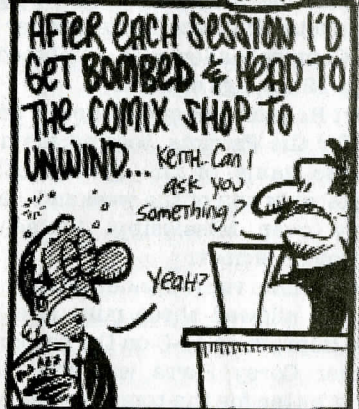 AFTER EACH SESSION I'D
GET BOMBED & HEAD TO
THE COMIX SHOP TO
UNWIND...
KEITH-CAN I
ASK YOU
SOMETHING?
YEAH?